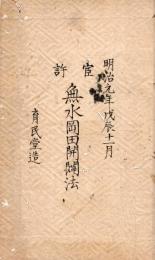 明治元年戊辰十一月
官許
無水岡田開闢法
育民堂造